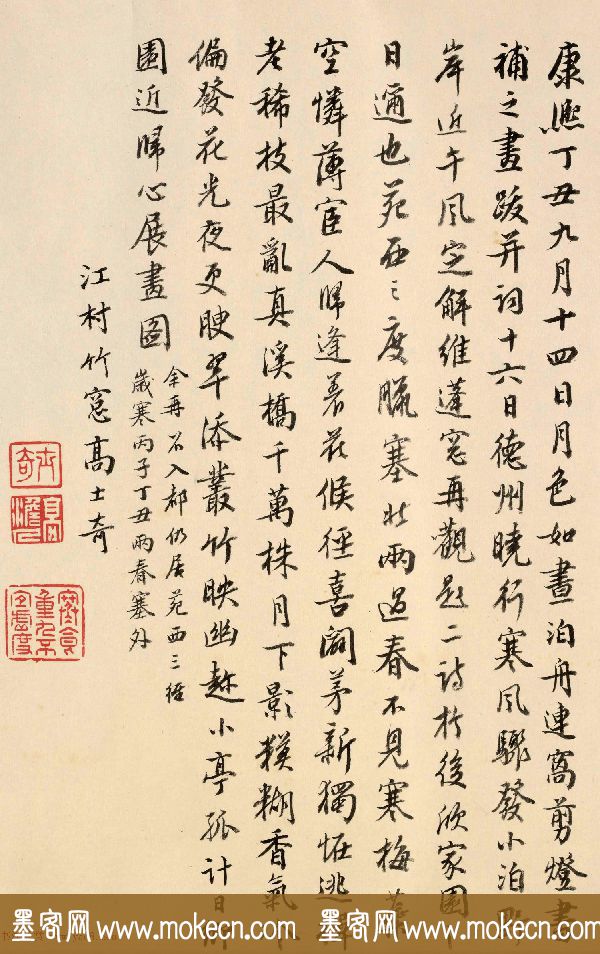 康熙丁丑九月十四日月色如晝泊舟連窩剪燈書
補之畫跋并词十六日德州曉行寒風驟發小泊野
岸近午風定解維蓬窓再觀題二诗於後欣家園
日邇也苑西三度臘塞北兩過春不見寒梅蕊
空憐薄宦人歸逢着花候径喜阁茅新獨怪逃禅
老稀枝最亂真溪橋千萬株月下影糢糊香氣
偏發花光夜更腴翠添叢竹映幽趂小亭孤計日
園近歸心展畫圖
余再召入都仍居苑西三经
歲寒丙子丁丑兩春塞外
江村竹窓高士奇
士奇
墨客网 www.mokecn.com 墨客网 www.mokecn.com